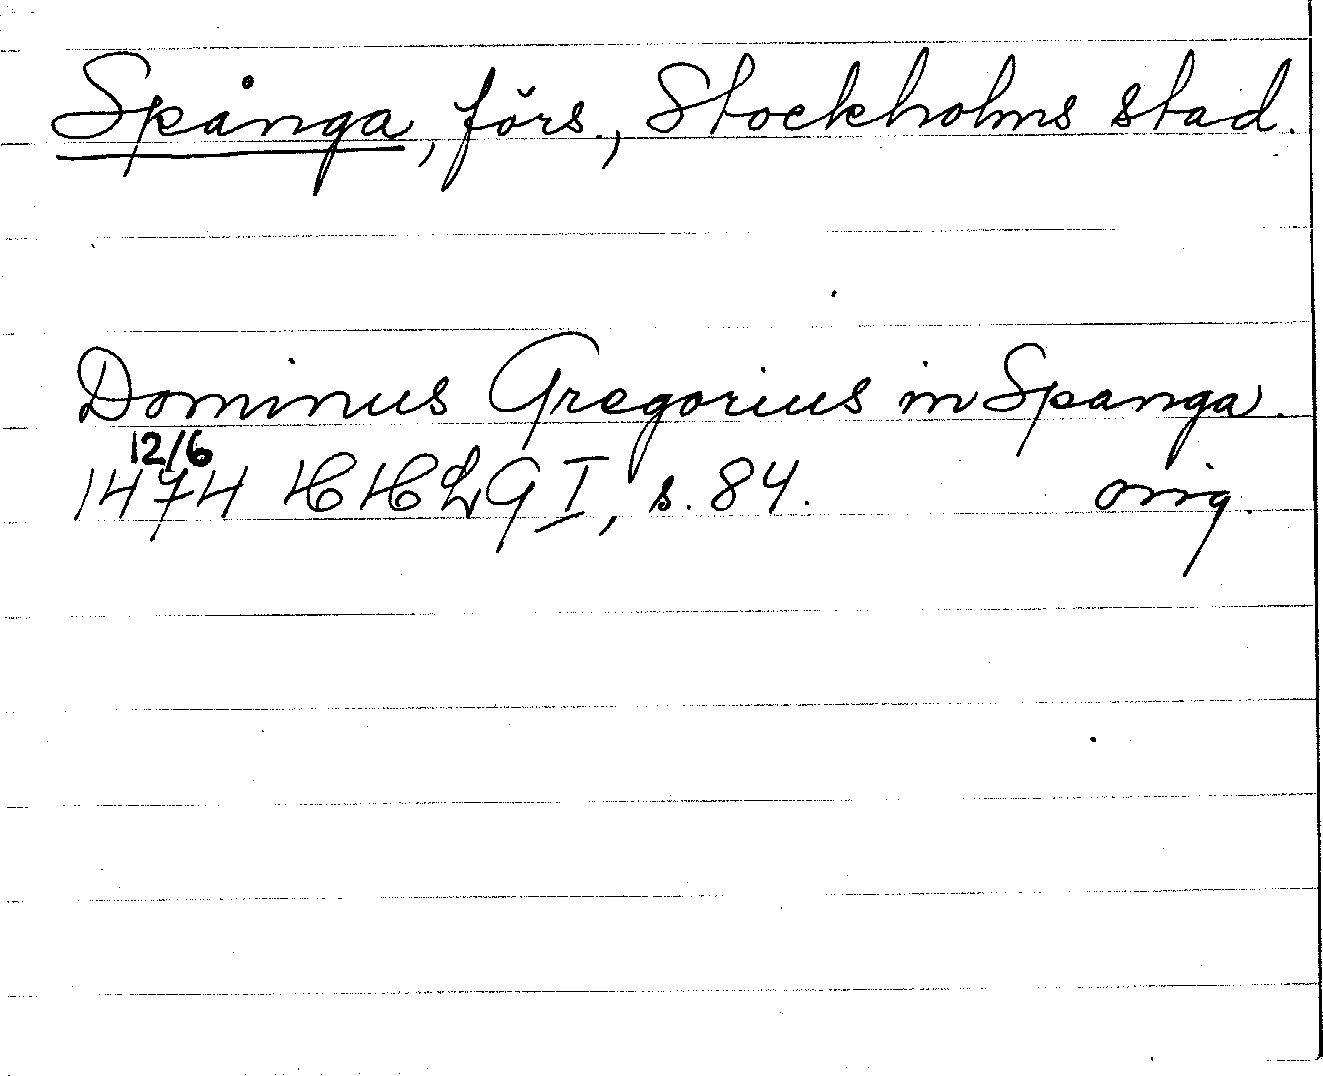 Spånga, förs., Stockholms stad.
Dominus Gregorius in Spanga.
12/6
1474 HHLG I, s. 84. orig.